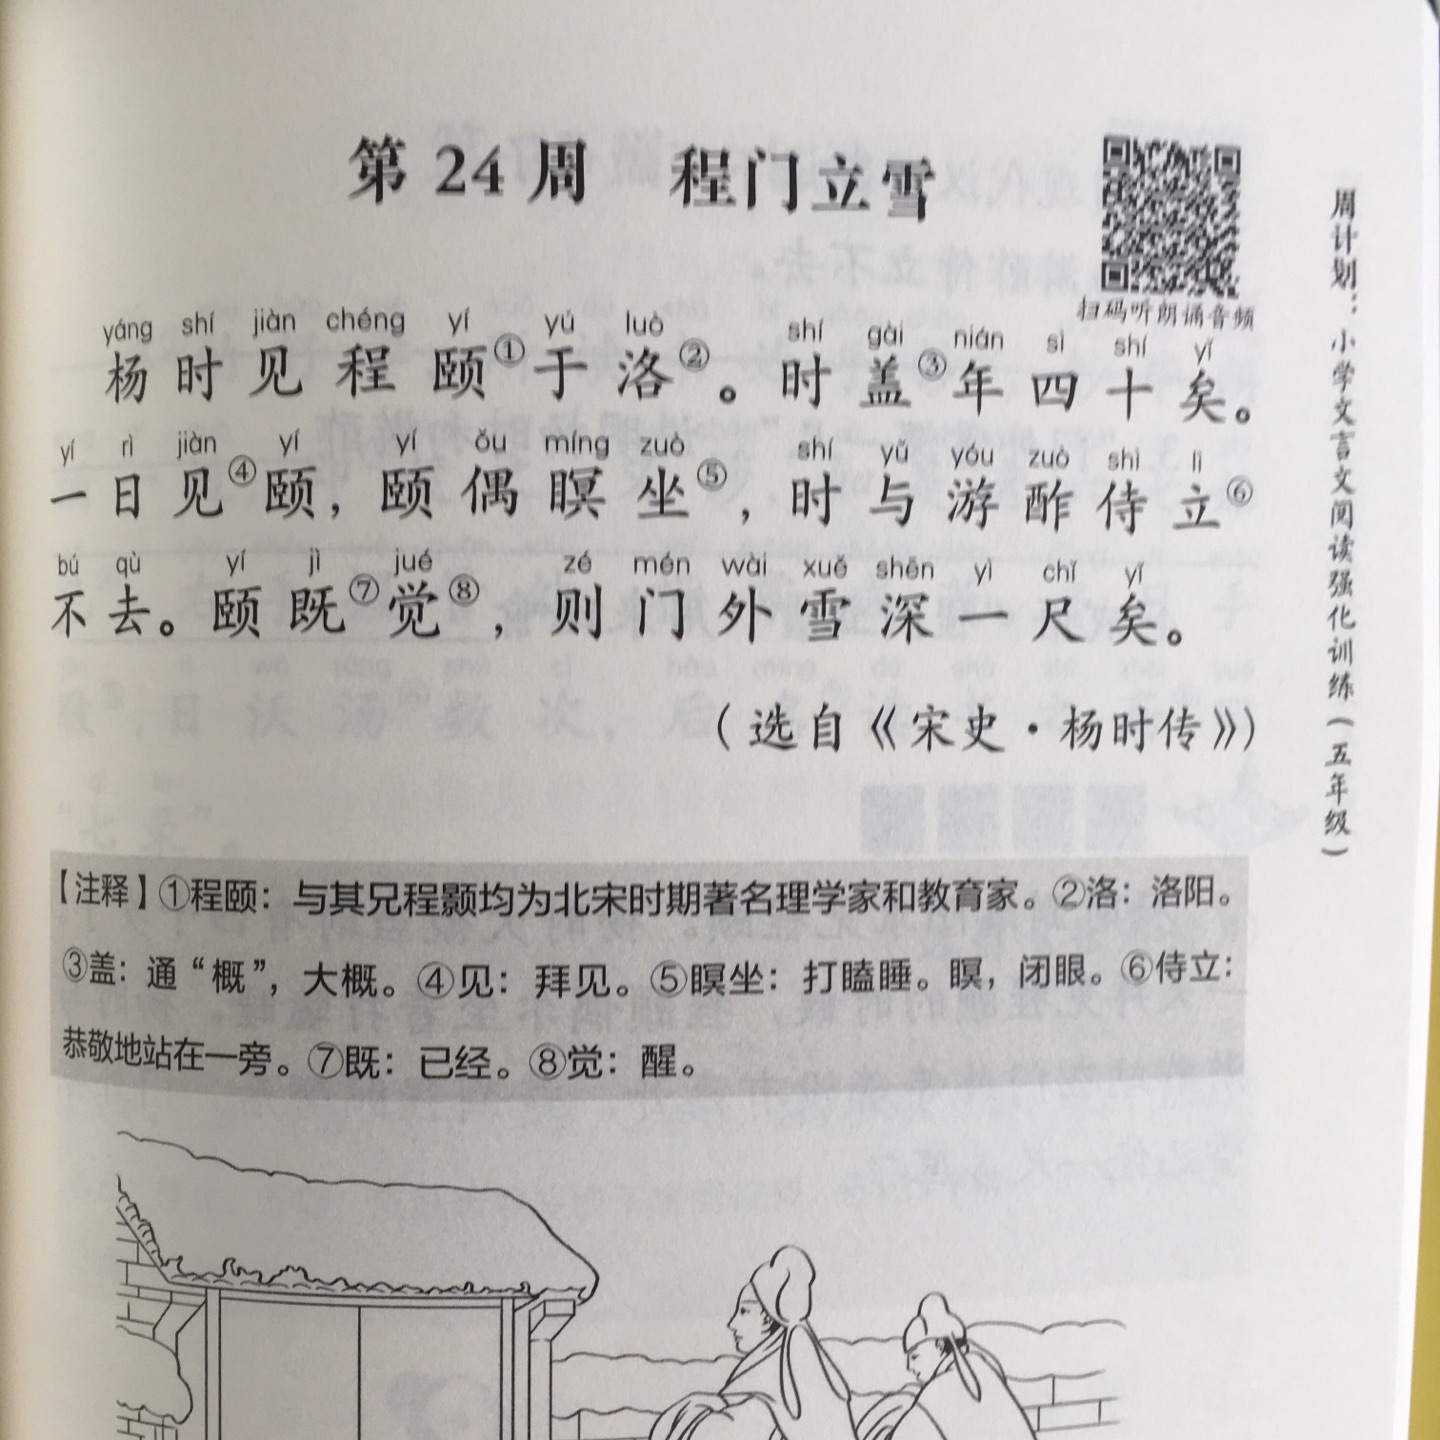 第24周 程门立雪
扫码听朗诵音频
周计划：小学文言文阅读强化训练（五年级）
yáng shí jiàn chéng yí yú luò shí gài nián sì shí yǐ
杨时见程颐①于洛②。时盖③年四十矣。
yí rì jiàn yí yí ǒu míng zuò shí yǔ yóu zuò shì lì
一日见④颐，颐偶瞑坐⑤，时与游酢侍立⑥
bú qù yí jì jué zé mén wài xuě shēn yì chǐ yǐ
不去。颐既⑦觉⑧，则门外雪深一尺矣。
（选自《宋史·杨时传》）
【注释】①程颐：与其兄程颢均为北宋时期著名理学家和教育家。②洛：洛阳。
③盖：通“概”，大概。④见：拜见。⑤瞑坐：打瞌睡。瞑，闭眼。⑥侍立：
恭敬地站在一旁。⑦既：已经。⑧觉：醒。